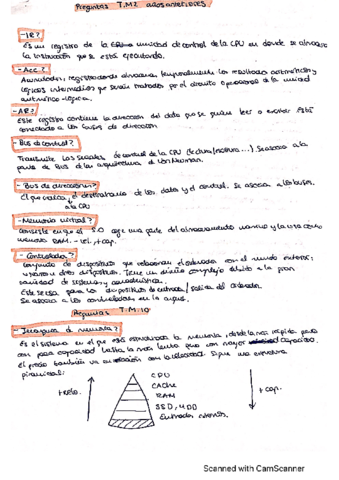 Preguntas T.M2 años anteriores
- IR?
Es un registro de la unidad de control de la CPU en donde se almacena
la instrucción que se está ejecutando.
- Acc?
Acumulador, registro donde almacena temporalmente los resultados aritméticos y
lógicos intermedios que serán tratados por el circuito operacional de la unidad
aritmético-lógica.
- AR?
Este registro contiene la dirección del dato que se quiere leer o escribir. Está
conectado a los buses de dirección
- Bus de control?
Transmite las señales de control de la CPU (lectura/escritura...). Se asocia a la
parte de Bus de la arquitectura de Von Neuman.
- Bus de direcciones?
El que indica el destinatario de los datos y el control. Se asocia a los buses.
a la CPU
- Memoria virtual?
Consiste en que el S.O coge una parte del almacenamiento masivo y la usa como
memoria RAM. - vel, + cap.
- Controlador?
Conjunto de dispositivos que relacionan el ordenador con el mundo exterior,
u otros dispositivos. Tiene un diseño complejo debido a la gran
variedad de sistemas y características.
Este se usa para los dispositivos de entrada / salida del ordenador.
Se asocia a los controladores en la arqui.
Preguntas T.M.10
- Jerarquía de memoria?
Es el sistema en el que está estructurada la memoria, desde la más rápida pero
con poca capacidad hasta la más lenta pero con mayor capacidad.
El precio también va en relación con la velocidad. Sigue una estructura
piramidal:
CPU
CACHE
+ veloc.
RAM
+ cap.
SSD, HDD
Entradas externas.
Scanned with CamScanner